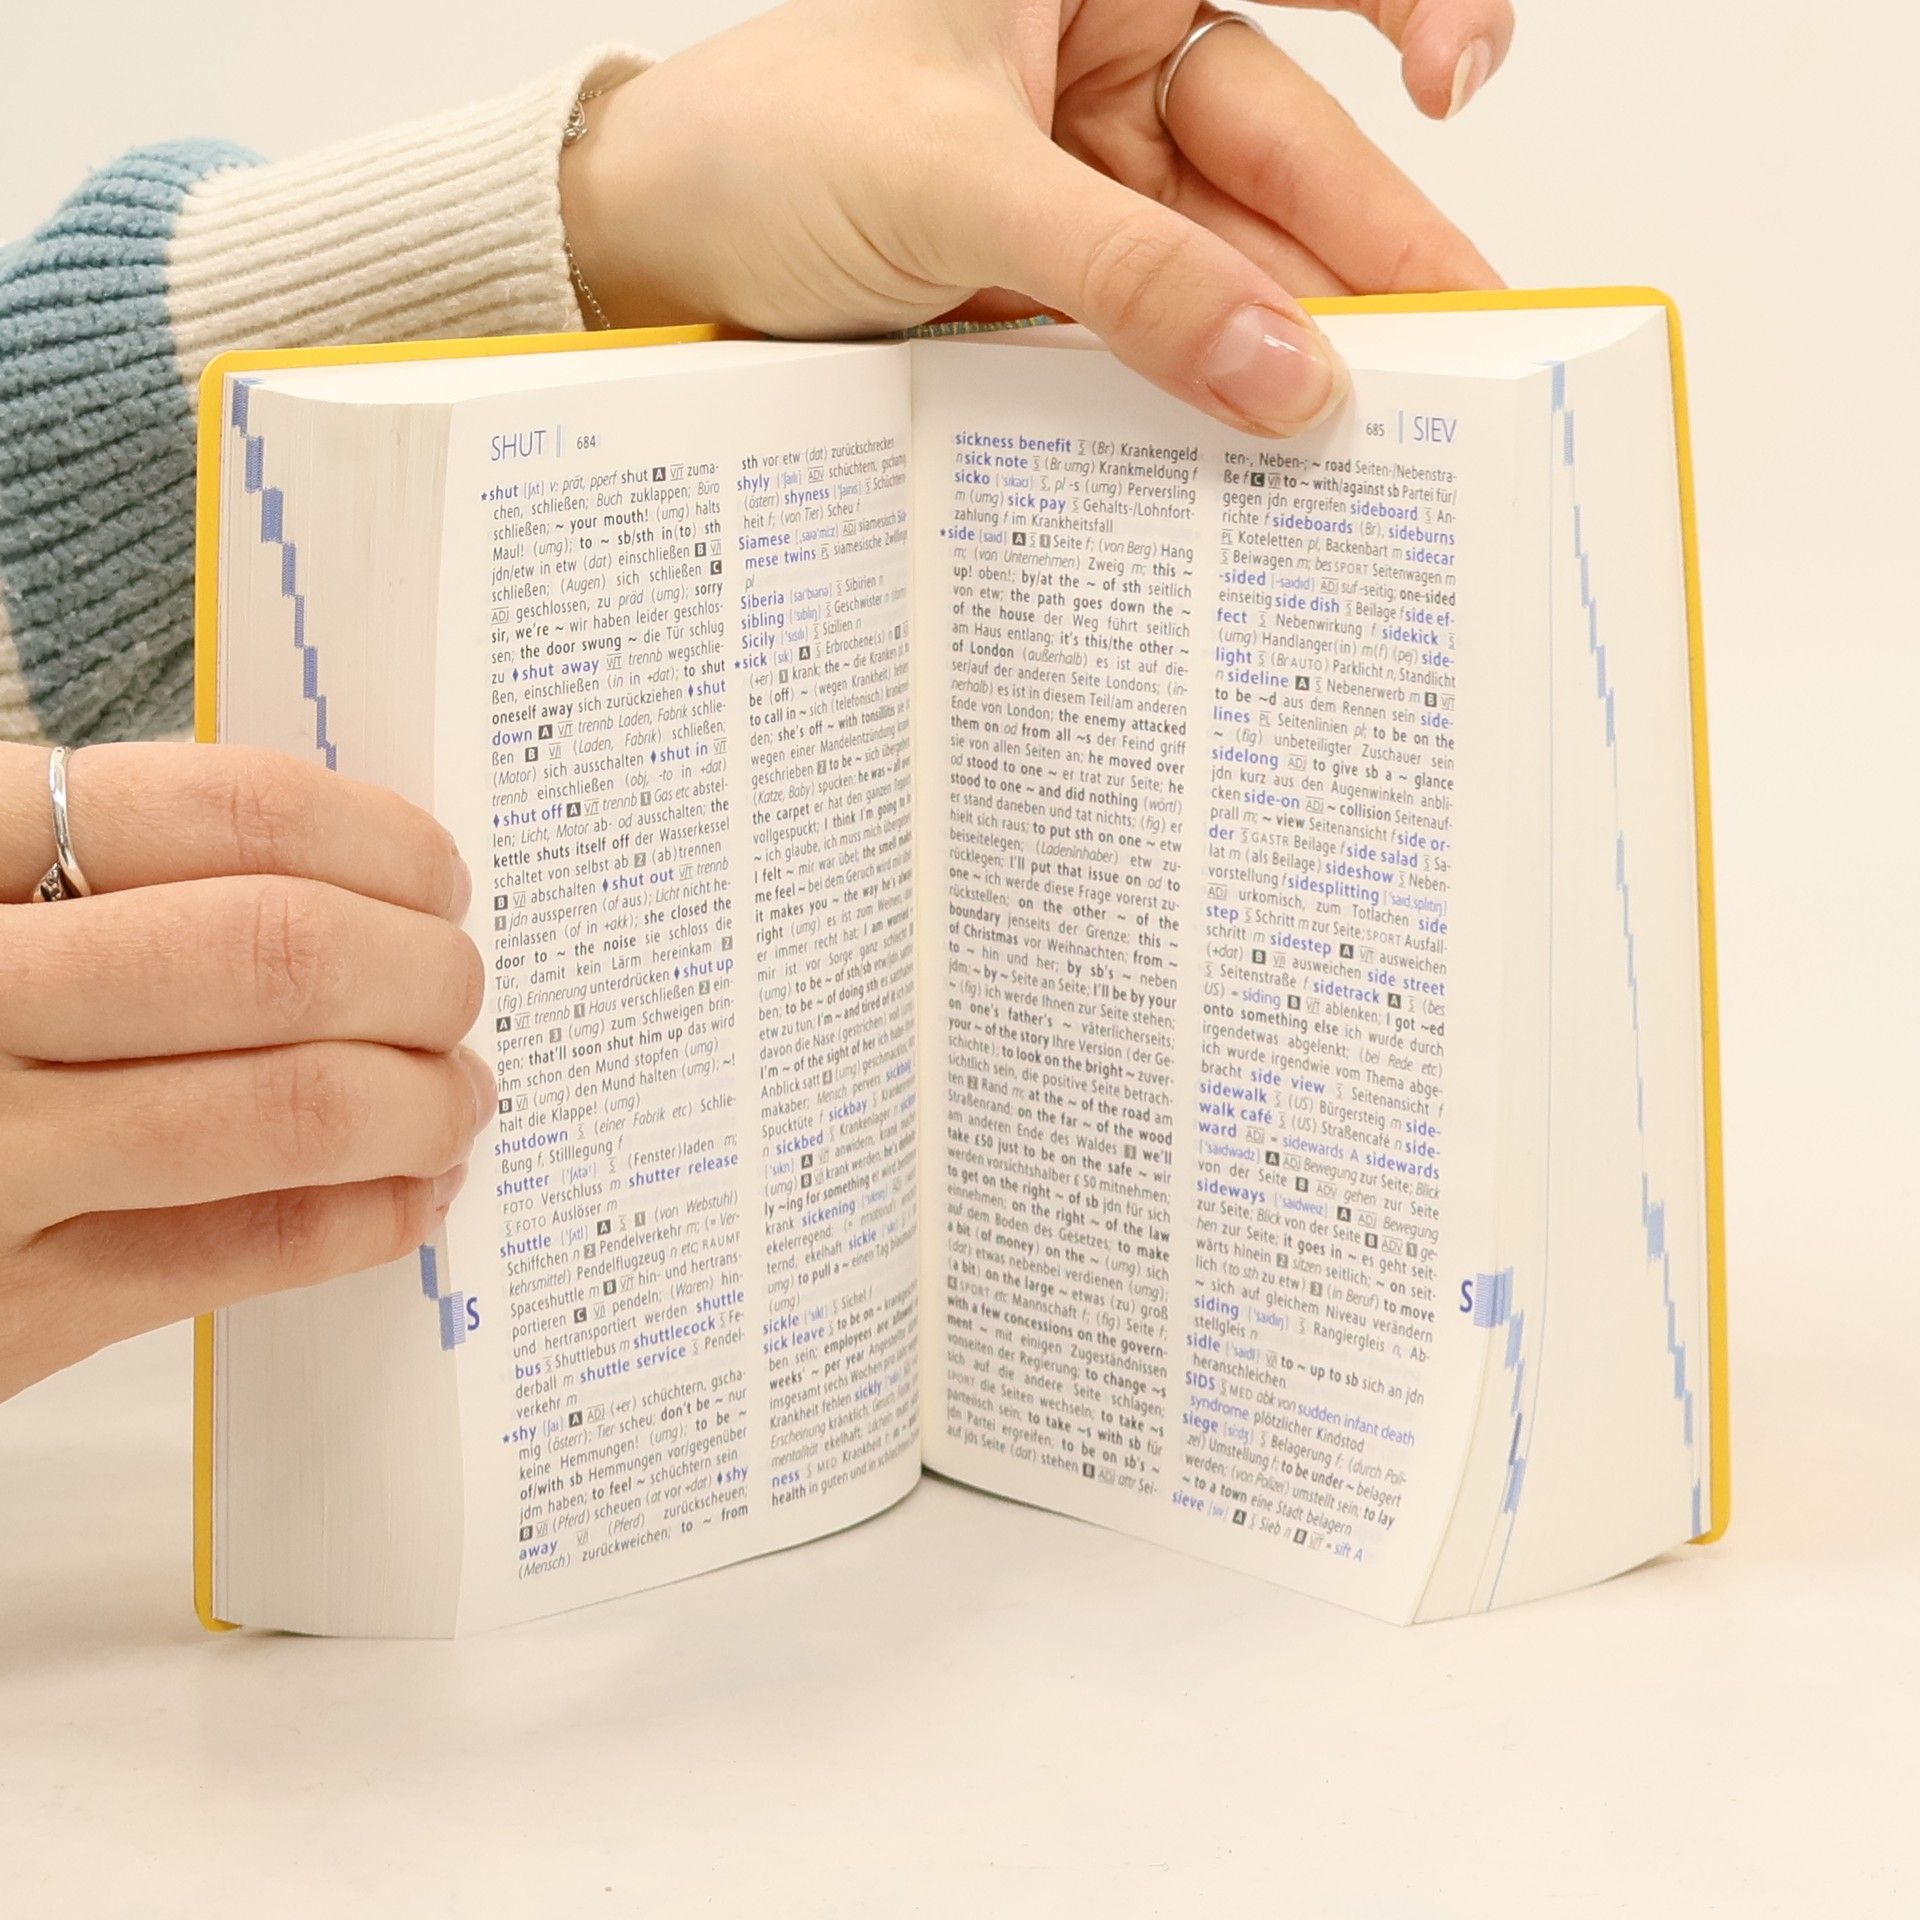 SHUT | 684
★shut [ʃʌt] v: prät, pperf shut A V/T zuma-
chen, schließen; Buch zuklappen; Büro
schließen; ~ your mouth! (umg) halts
Maul! (umg); to ~ sb/sth in(to) sth
jdn/etw in etw (dat) einschließen B V/I
schließen; (Augen) sich schließen C
ADJ geschlossen, zu präd (umg); sorry
sir, we're ~ wir haben leider geschlos-
sen; the door swung ~ die Tür schlug
zu ♦shut away V/T trennb wegschlie-
ßen, einschließen (in in +dat); to shut
oneself away sich zurückziehen ♦shut
down A V/T trennb Laden, Fabrik schlie-
ßen B V/I (Laden, Fabrik) schließen;
(Motor) sich ausschalten ♦shut in V/T
trennb einschließen (obj, -to in +dat)
♦shut off A V/T trennb 1 Gas etc abstel-
len; Licht, Motor ab- od ausschalten; the
kettle shuts itself off der Wasserkessel
schaltet von selbst ab 2 (ab)trennen
B V/I abschalten ♦shut out V/T trennb
1 jdn aussperren (of aus); Licht nicht he-
reinlassen (of in +akk); she closed the
door to ~ the noise sie schloss die
Tür, damit kein Lärm hereinkam 2
(fig) Erinnerung unterdrücken ♦shut up
A V/T trennb 1 Haus verschließen 2 ein-
sperren 3 (umg) zum Schweigen brin-
gen; that'll soon shut him up das wird
ihm schon den Mund stopfen (umg)
B V/I (umg) den Mund halten (umg); ~!
halt die Klappe! (umg)
shutdown S (einer Fabrik etc) Schlie-
ßung f, Stilllegung f
shutter ['ʃʌtəʳ] S (Fenster)laden m;
FOTO Verschluss m shutter release
S FOTO Auslöser m
shuttle ['ʃʌtl] A S 1 (von Webstuhl)
Schiffchen n 2 Pendelverkehr m; (= Ver-
kehrsmittel) Pendelflugzeug n etc; RAUMF
Spaceshuttle m B V/T hin- und hertrans-
portieren C V/I pendeln; (Waren) hin-
und hertransportiert werden shuttle
bus S Shuttlebus m shuttlecock S Fe-
derball m shuttle service S Pendel-
verkehr m
★shy [ʃaɪ] A ADJ (+er) schüchtern, gscha-
mig (österr); Tier scheu; don't be ~ nur
keine Hemmungen! (umg); to be ~
of/with sb Hemmungen vor/gegenüber
jdm haben; to feel ~ schüchtern sein
B V/I (Pferd) scheuen (at vor +dat) ♦shy
away V/I (Pferd) zurückscheuen;
(Mensch) zurückweichen; to ~ from
sth vor etw (dat) zurückschrecken
shyly ['ʃaɪlɪ] ADV schüchtern, gschamig
(österr) shyness ['ʃaɪnɪs] S Schüchtern-
heit f; (von Tier) Scheu f
Siamese [ˌsaɪə'miːz] ADJ siamesisch Sia-
mese twins PL siamesische Zwillinge
pl
Siberia [saɪ'bɪərɪə] S Sibirien n
sibling ['sɪblɪŋ] S Geschwister n
Sicily ['sɪsɪlɪ] S Sizilien n
★sick [sɪk] A S Erbrochene(s) n B
(+er) 1 krank; the ~ die Kranken pl; to
be (off) ~ (wegen Krankheit) fehlen;
to call in ~ sich (telefonisch) krankmel-
den; she's off ~ with tonsillitis sie ist
wegen einer Mandelentzündung krank-
geschrieben 2 to be ~ sich übergeben;
(Katze, Baby) spucken; he was ~ all over
the carpet er hat den ganzen Teppich
vollgespuckt; I think I'm going to be
~ ich glaube, ich muss mich übergeben;
I felt ~ mir war übel; the smell makes
me feel ~ bei dem Geruch wird mir übel;
it makes you ~ the way he's always
right (umg) es ist zum Weinen, dass
er immer recht hat; I am worried ~
mir ist vor Sorge ganz schlecht
(umg) to be ~ of sth/sb etw/jdn satt ha-
ben; to be ~ of doing sth es satthaben,
etw zu tun; I'm ~ and tired of it ich habe
davon die Nase (gestrichen) voll (umg);
I'm ~ of the sight of her ich habe ihren
Anblick satt 4 (umg) geschmacklos;
makaber; Mensch pervers sickbag S
Spucktüte f sickbay S Krankenrevier
n sickbed S Krankenlager n sicken
['sɪkn] A V/T anwidern, krank machen
(umg) B V/I krank werden; he's definite-
ly ~ing for something er wird bestimmt
krank sickening ['sɪknɪŋ] ADJ
ekelerregend; (= emotional)
ternd, ekelhaft sickie ['sɪkɪ] S
umg) to pull a ~ einen Tag blaumachen
(umg)
sickle ['sɪkl] S Sichel f
sick leave S to be on ~ krankgeschrie-
ben sein; employees are allowed
weeks' ~ per year Angestellte dürfen
insgesamt sechs Wochen pro Jahr wegen
Krankheit fehlen sickly ['sɪklɪ]
Erscheinung kränklich; Geruch,
mentalität ekelhaft; Lächeln matt
ness S MED Krankheit f; in ~ and in
health in guten und in schlechten
S
685 | SIEV
sickness benefit S (Br) Krankengeld
n sick note S (Br umg) Krankmeldung f
sicko ['sɪkəʊ] S, pl -s (umg) Perversling
m (umg) sick pay S Gehalts-/Lohnfort-
zahlung f im Krankheitsfall
★side [saɪd] A S 1 Seite f; (von Berg) Hang
m; (von Unternehmen) Zweig m; this ~
up! oben!; by/at the ~ of sth seitlich
von etw; the path goes down the ~
of the house der Weg führt seitlich
am Haus entlang; it's this/the other ~
of London (außerhalb) es ist auf die-
ser/auf der anderen Seite Londons; (in-
nerhalb) es ist in diesem Teil/am anderen
Ende von London; the enemy attacked
them on od from all ~s der Feind griff
sie von allen Seiten an; he moved over
od stood to one ~ er trat zur Seite; he
stood to one ~ and did nothing (wörtl)
er stand daneben und tat nichts; (fig) er
hielt sich raus; to put sth on one ~ etw
beiseitelegen; (Ladeninhaber) etw zu-
rücklegen; I'll put that issue on od to
one ~ ich werde diese Frage vorerst zu-
rückstellen; on the other ~ of the
boundary jenseits der Grenze; this ~
of Christmas vor Weihnachten; from ~
to ~ hin und her; by sb's ~ neben
jdm; ~ by ~ Seite an Seite; I'll be by your
~ (fig) ich werde Ihnen zur Seite stehen;
on one's father's ~ väterlicherseits;
your ~ of the story Ihre Version (der Ge-
schichte); to look on the bright ~ zuver-
sichtlich sein, die positive Seite betrach-
ten 2 Rand m; at the ~ of the road am
Straßenrand; on the far ~ of the wood
am anderen Ende des Waldes 3 we'll
take £50 just to be on the safe ~ wir
werden vorsichtshalber £ 50 mitnehmen;
to get on the right ~ of sb jdn für sich
einnehmen; on the right ~ of the law
auf dem Boden des Gesetzes; to make
a bit (of money) on the ~ (umg) sich
(dat) etwas nebenbei verdienen (umg);
(a bit) on the large ~ etwas (zu) groß
4 SPORT etc Mannschaft f; (fig) Seite f;
with a few concessions on the govern-
ment ~ mit einigen Zugeständnissen
vonseiten der Regierung; to change ~s
sich auf die andere Seite schlagen;
SPORT die Seiten wechseln; to take ~s
parteiisch sein; to take ~s with sb für
jdn Partei ergreifen; to be on sb's ~
auf jds Seite (dat) stehen B ADJ attr Sei-
ten-, Neben-; ~ road Seiten-/Nebenstra-
ße f C V/I to ~ with/against sb Partei für/
gegen jdn ergreifen sideboard S An-
richte f sideboards (Br), sideburns
PL Koteletten pl, Backenbart m sidecar
S Beiwagen m; bes SPORT Seitenwagen m
-sided [-saɪdɪd] ADJ suf -seitig; one-sided
einseitig side dish S Beilage f side ef-
fect S Nebenwirkung f sidekick S
(umg) Handlanger(in) m(f) (pej) side-
light S (Br AUTO) Parklicht n, Standlicht
n sideline A S Nebenerwerb m B V/T
to be ~d aus dem Rennen sein side-
lines PL Seitenlinien pl; to be on the
~ (fig) unbeteiligter Zuschauer sein
sidelong ADJ to give sb a ~ glance
jdn kurz aus den Augenwinkeln anbli-
cken side-on ADJ ~ collision Seitenauf-
prall m; ~ view Seitenansicht f side or-
der S GASTR Beilage f side salad S Sa-
lat m (als Beilage) sideshow S Neben-
vorstellung f sidesplitting ['saɪdˌsplɪtɪŋ]
ADJ urkomisch, zum Totlachen side
step S Schritt m zur Seite; SPORT Ausfall-
schritt m sidestep A V/T ausweichen
(+dat) B V/I ausweichen side street
S Seitenstraße f sidetrack A S (bes
US) = siding B V/T ablenken; I got ~ed
onto something else ich wurde durch
irgendetwas abgelenkt; (bei Rede etc)
ich wurde irgendwie vom Thema abge-
bracht side view S Seitenansicht f
sidewalk S (US) Bürgersteig m side-
walk café S (US) Straßencafé n side-
ward ADJ = sidewards A sidewards
['saɪdwədz] A ADJ Bewegung zur Seite; Blick
von der Seite B ADV gehen zur Seite
sideways ['saɪdweɪz] A ADJ Bewegung
zur Seite; Blick von der Seite B ADV 1 ge-
hen zur Seite; it goes in ~ es geht seit-
wärts hinein 2 sitzen seitlich; ~ on seit-
lich (to sth zu etw) 3 (in Beruf) to move
~ sich auf gleichem Niveau verändern
siding ['saɪdɪŋ] S Rangiergleis n, Ab-
stellgleis n
sidle ['saɪdl] V/I to ~ up to sb sich an jdn
heranschleichen
SIDS S MED abk von sudden infant death
syndrome plötzlicher Kindstod
siege [siːdʒ] S Belagerung f; (durch Poli-
zei) Umstellung f; to be under ~ belagert
werden; (von Polizei) umstellt sein; to lay
~ to a town eine Stadt belagern
sieve [sɪv] A S Sieb n B V/T = sift A
S